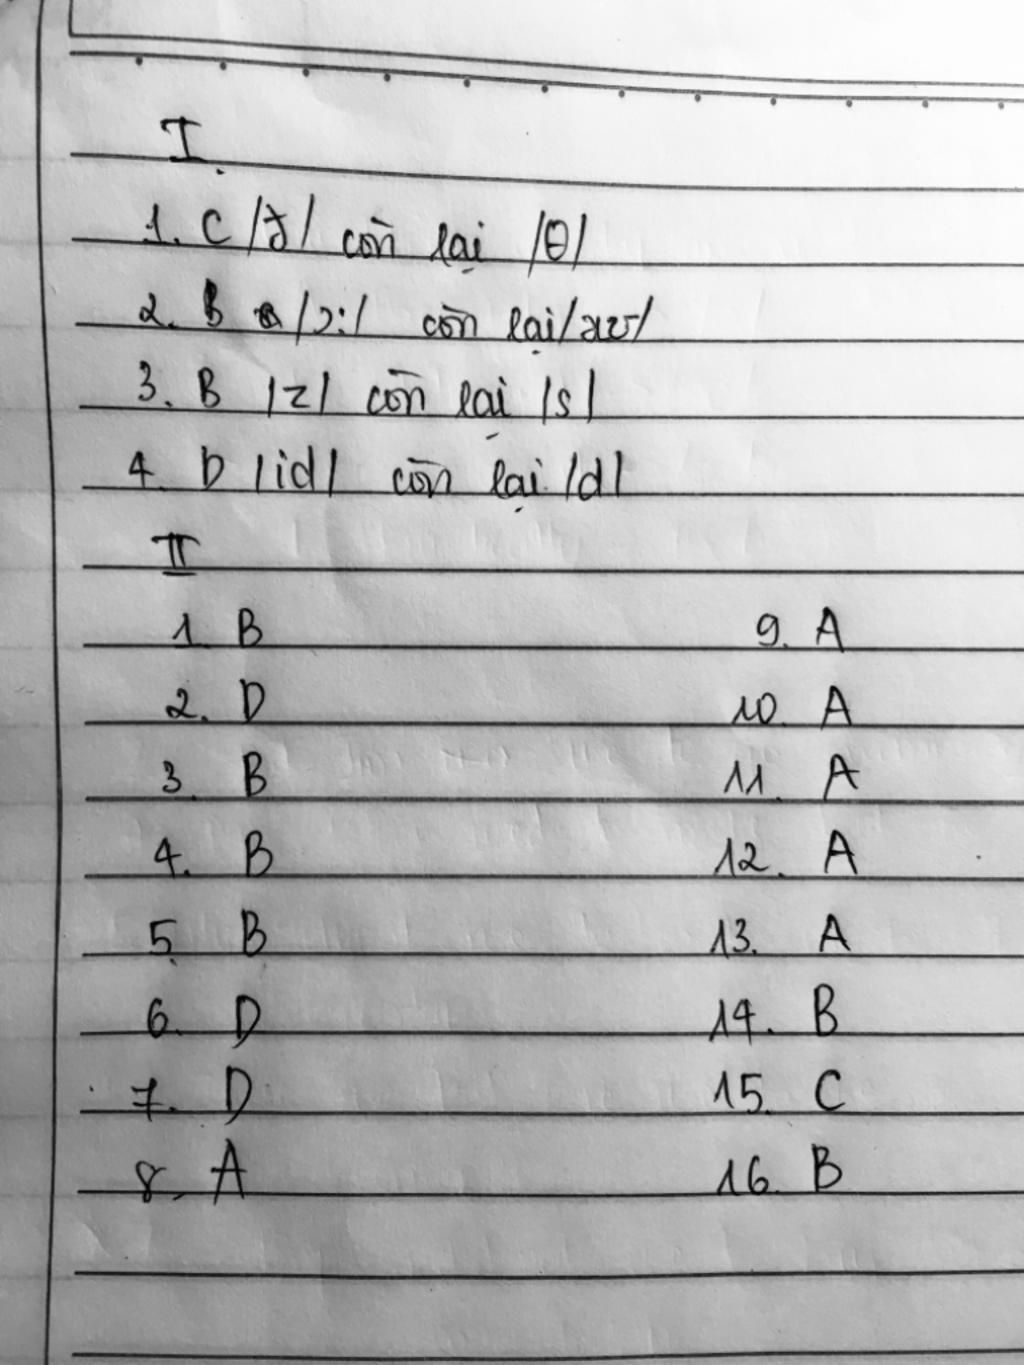 I.
1. C /ð/ còn lại /θ/
2. B /ɔ:/ còn lại /əʊ/
3. B /z/ còn lại /s/
4. D /id/ còn lại /d/
II
1. B 9. A
2. D 10. A
3. B 11. A
4. B 12. A
5. B 13. A
6. D 14. B
7. D 15. C
8. A 16. B